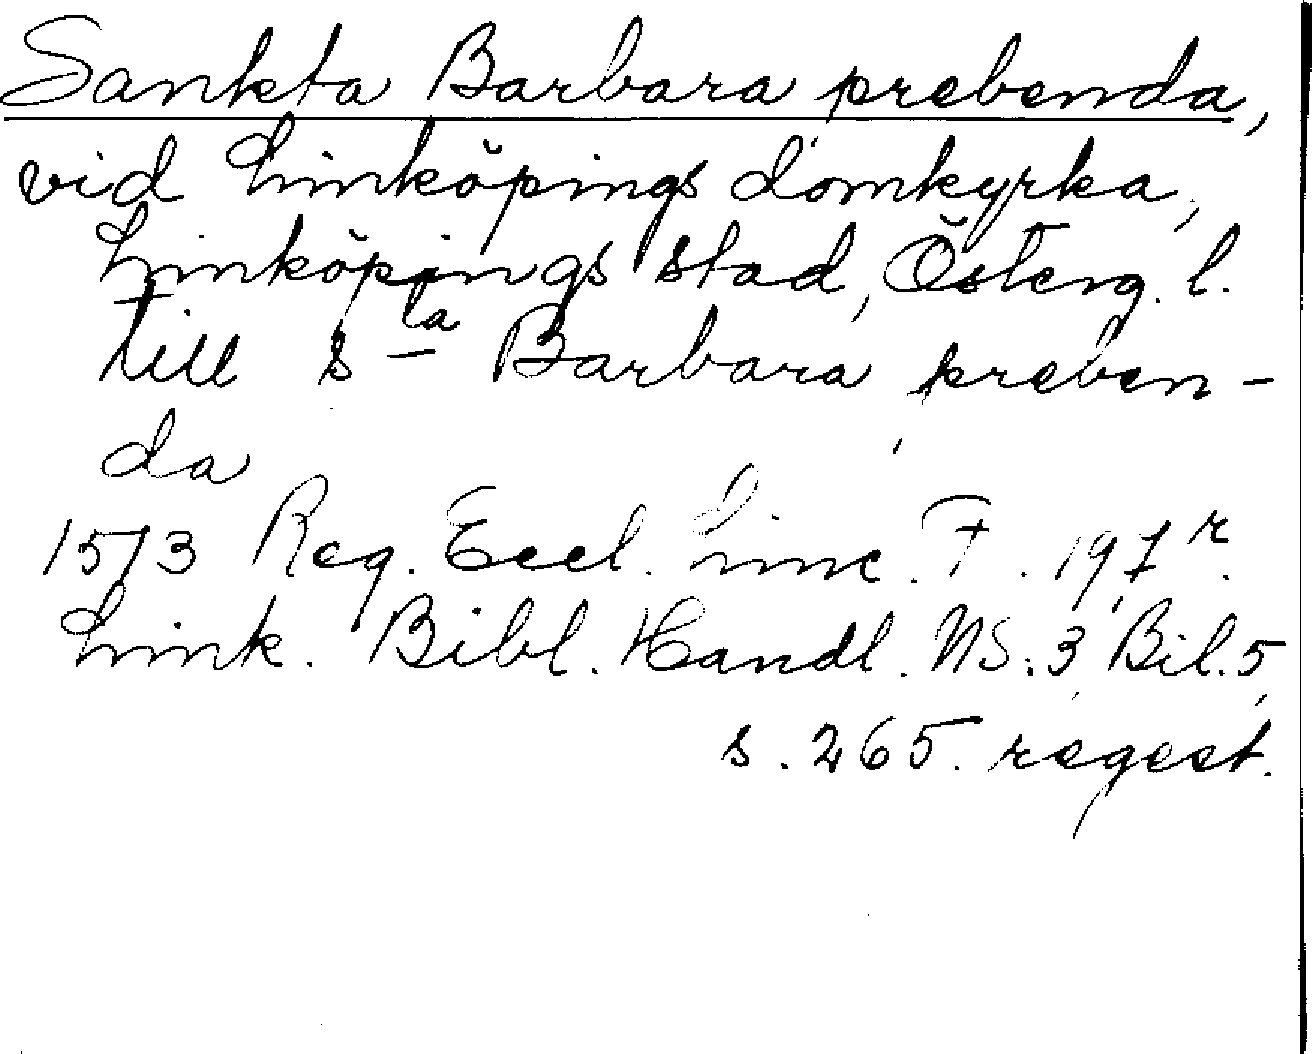 Sankta Barbara prebenda,
vid Linköpings domkyrka,
Linköpings stad, Österg. l.
till s ta Barbara preben-
da
1573 Reg. Eccl. Linc. F. 197 r.
Link. Bibl. Handl. NS. 3, Bil. 5,
s. 265. regest.